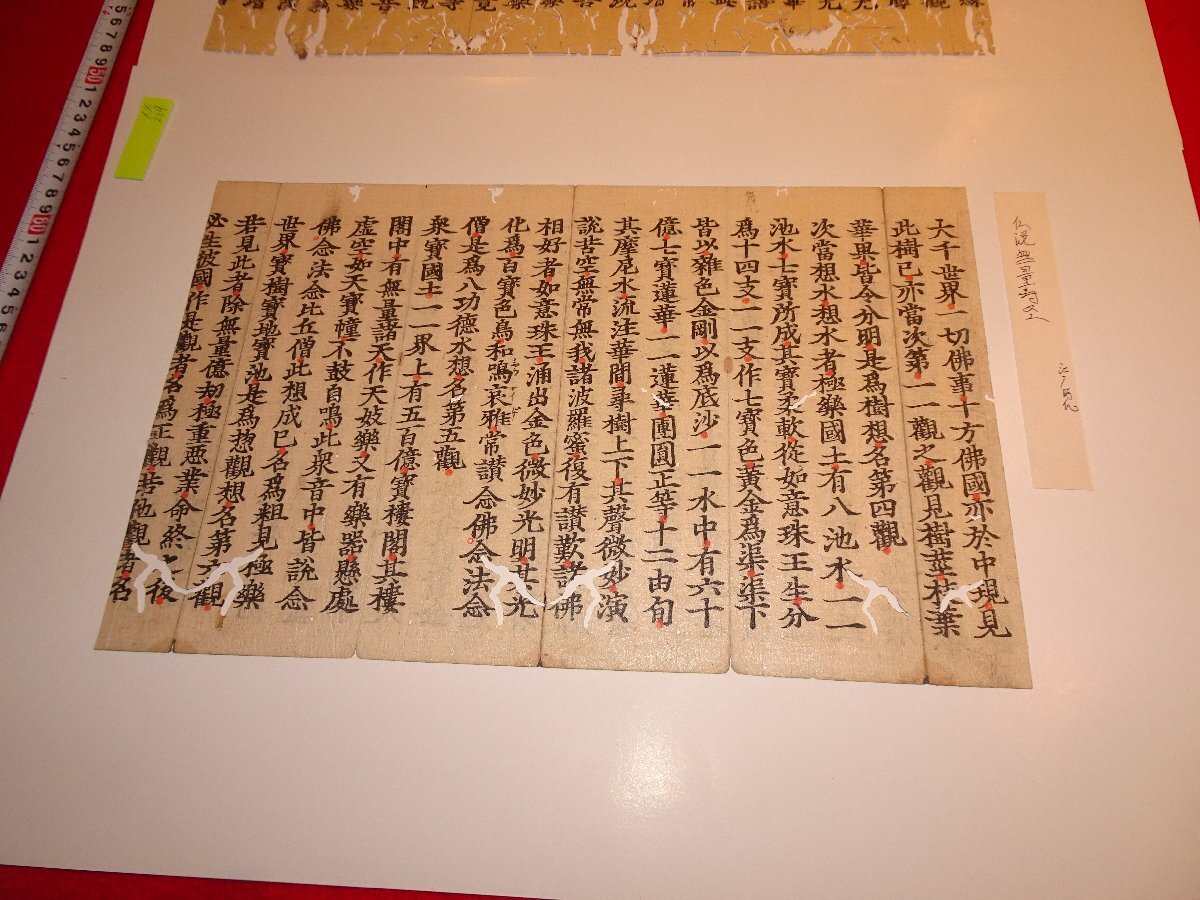 大千世界一切佛事十方佛國亦於中現見
此樹已亦當次第一一觀之觀見樹莖枝葉
華果皆令分明是爲樹想名第四觀
次當想水想水者極樂國土有八池水一一
池水七寶所成其寶柔軟從如意珠王生分
爲十四支一一支作七寶色黃金爲渠渠下
皆以雜色金剛以爲底沙一一水中有六十
億七寶蓮華一一蓮華團圓正等十二由旬
其摩尼水流注華間尋樹上下其聲微妙演
說苦空無常無我諸波羅蜜復有讃歎諸佛
相好者如意珠王涌出金色微妙光明其光
化爲百寶色鳥和鳴哀雅常讃念佛念法念
僧是爲八功德水想名第五觀
衆寶國土一一界上有五百億寶樓閣其樓
閣中有無量諸天作天妓樂又有樂器懸處
虛空如天寶幢不鼓自鳴此衆音中皆說念
佛念法念比丘僧此想成已名爲粗見極樂
世界寶樹寶地寶池是爲惣觀想名第六觀
若見此者除無量億劫極重惡業命終之後
必生彼國作是觀者名爲正觀若他觀者名